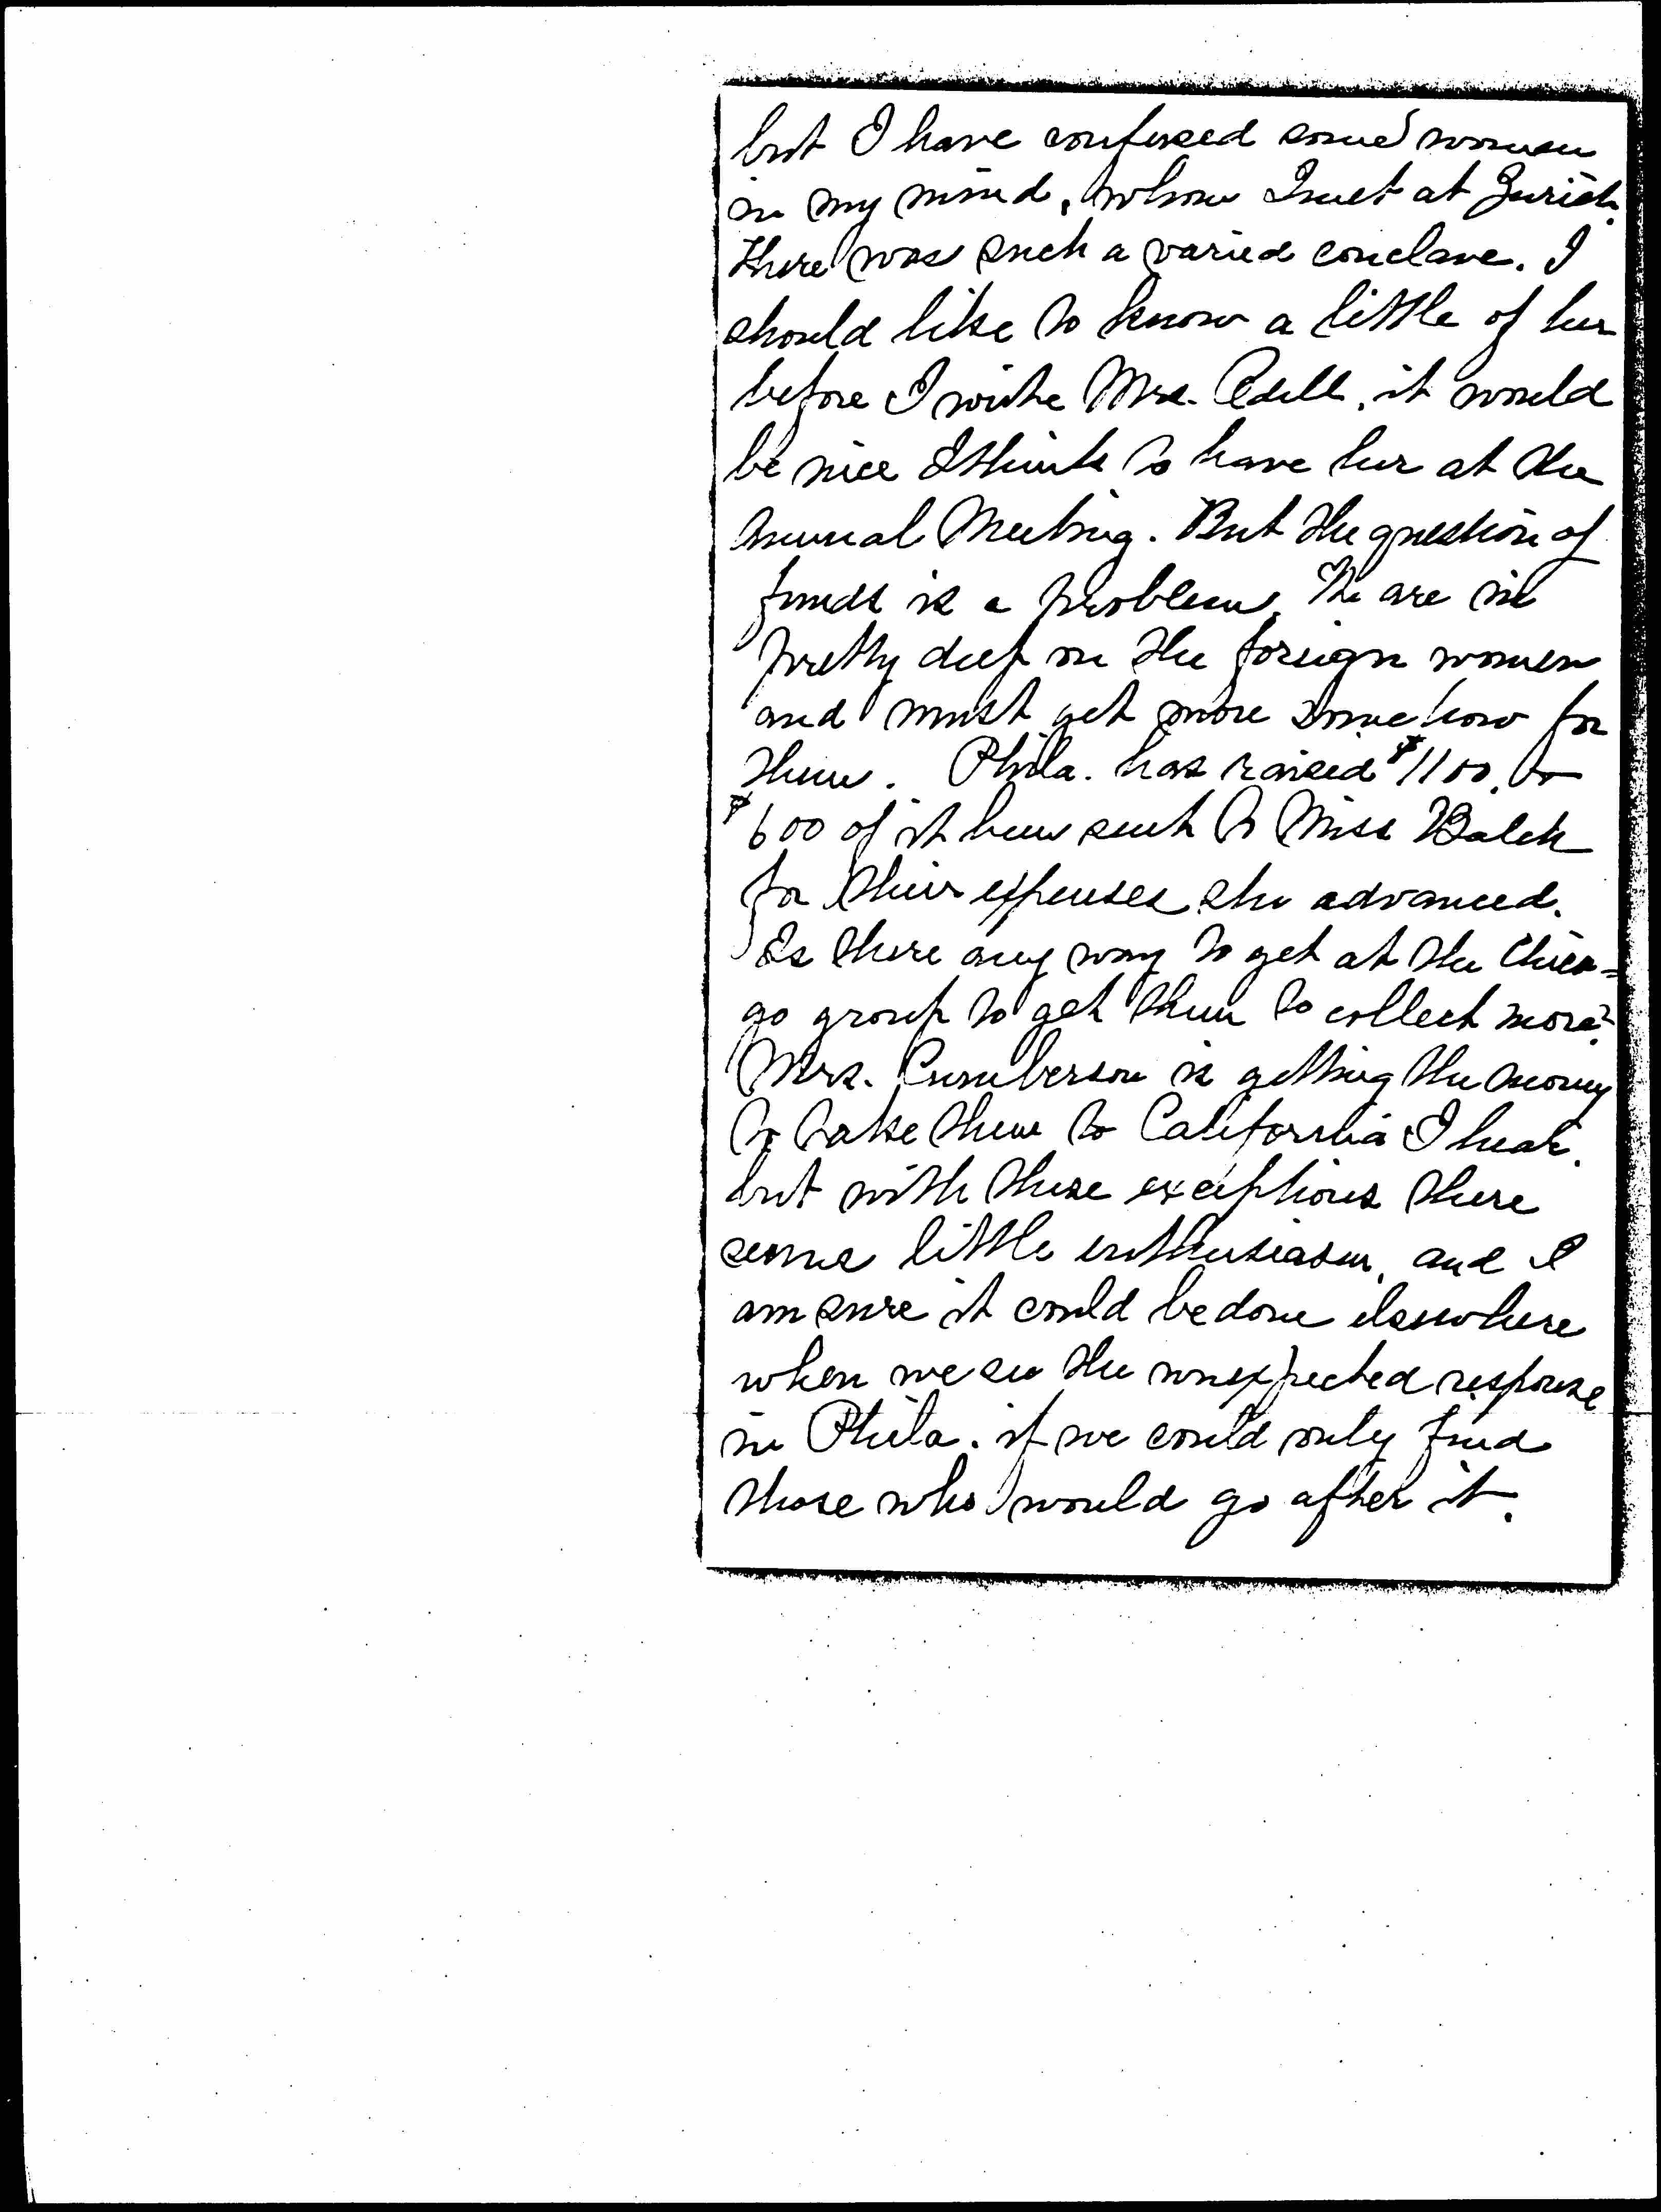 but I have confused some women
in my mind, whom I met at Zurich.
There was such a varied conclave. I
should like to know a little of her
before I write Mrs. Odell, it would
be nice I think to have her at the
Annual Meeting. But the question of
funds is a problem. We are in
pretty deep on the foreign women
and must get more somehow for
them. Phila. has raised $1100. &
$600 of it been sent to Miss Balch
for their expenses she advanced.
Is there any way to get at the Chica=
go group to get them to collect more?
Mrs. Cumberson is getting the money
to take them to California I hear.
but with these exceptions there
seems little enthusiasm, and I
am sure it could be done elsewhere
when we see the unexpected response
in Phila. if we could only find
those who would go after it.